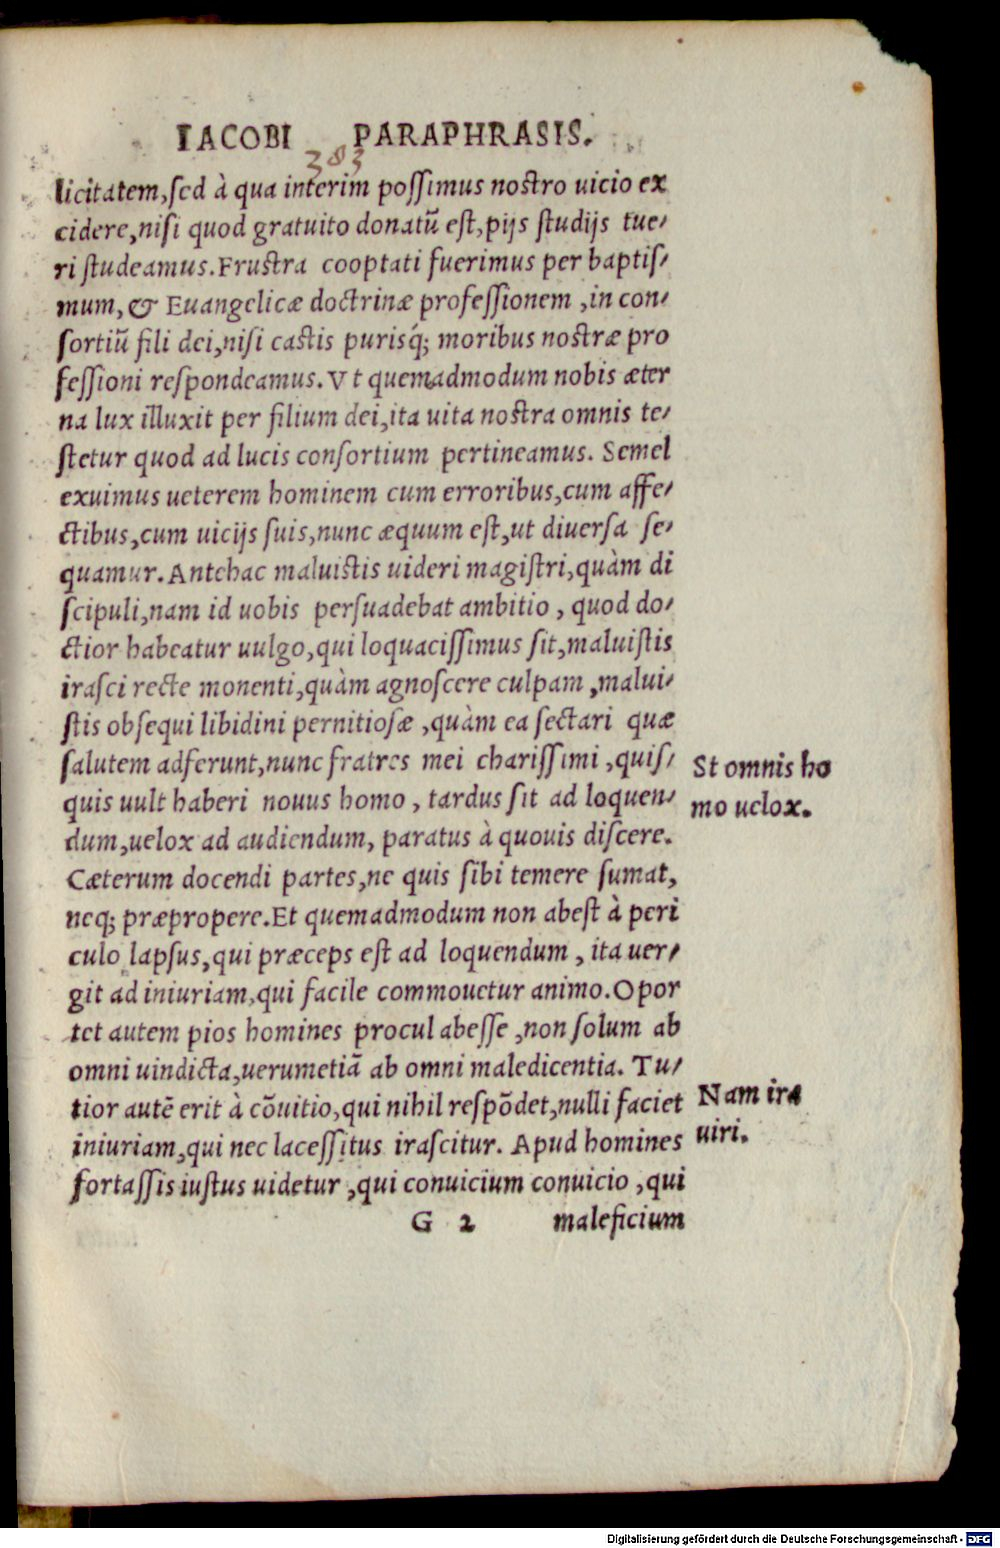 IACOBI PARAPHRASIS.
383
licitatem,ſed à qua interim poſſimus noſtro uicio ex
cidere,niſi quod gratuito donatũ eſt,pijs ſtudijs tue⸗
ri ſtudeamus.Fruſtra cooptati fuerimus per baptiſ⸗
mum,& Euangelicæ doctrinæ profeſſionem ,in con⸗
ſortiũ fili dei,niſi caſtis purisq́; moribus noſtræ pro
feſſioni reſpondeamus.Vt quemadmodum nobis æter
na lux illuxit per filium dei,ita uita noſtra omnis te⸗
ſtetur quod ad lucis conſortium pertineamus. Semel
exuimus ueterem hominem cum erroribus,cum affe⸗
ctibus,cum uicijs ſuis,nunc æquum eſt,ut diuerſa ſe⸗
quamur.Antehac maluiſtis uideri magiſtri,quàm di
ſcipuli,nam id uobis perſuadebat ambitio , quod do⸗
ctior habeatur uulgo,qui loquaciſſimus ſit,maluiſtis
iraſci recte monenti,quàm agnoſcere culpam ,malui⸗
ſtis obſequi libidini pernitioſæ ,quàm ea ſectari quæ
ſalutem adferunt,nunc fratres mei chariſſimi ,quiſ⸗
quis uult haberi nouus homo , tardus ſit ad loquen⸗
dum,uelox ad audiendum, paratus à quouis diſcere.
Cæterum docendi partes,ne quis ſibi temere ſumat,
neq; præpropere.Et quemadmodum non abeſt à peri
culo lapſus,qui præceps eſt ad loquendum , ita uer⸗
git ad iniuriam,qui facile commouetur animo.Opor
tet autem pios homines procul abeſſe ,non ſolum ab
omni uindicta,uerumetiã ab omni maledicentia. Tu⸗
tior autẽ erit à cõuitio,qui nihil reſpõdet,nulli faciet
iniuriam,qui nec laceſſitus iraſcitur. Apud homines
fortaſſis iuſtus uidetur ,qui conuicium conuicio ,qui
G 2 maleficium
St omnis ho
mo uelox.
Nam ira
uiri.
Digitalisierung gefördert durch die Deutsche Forschungsgemeinschaft - DFG